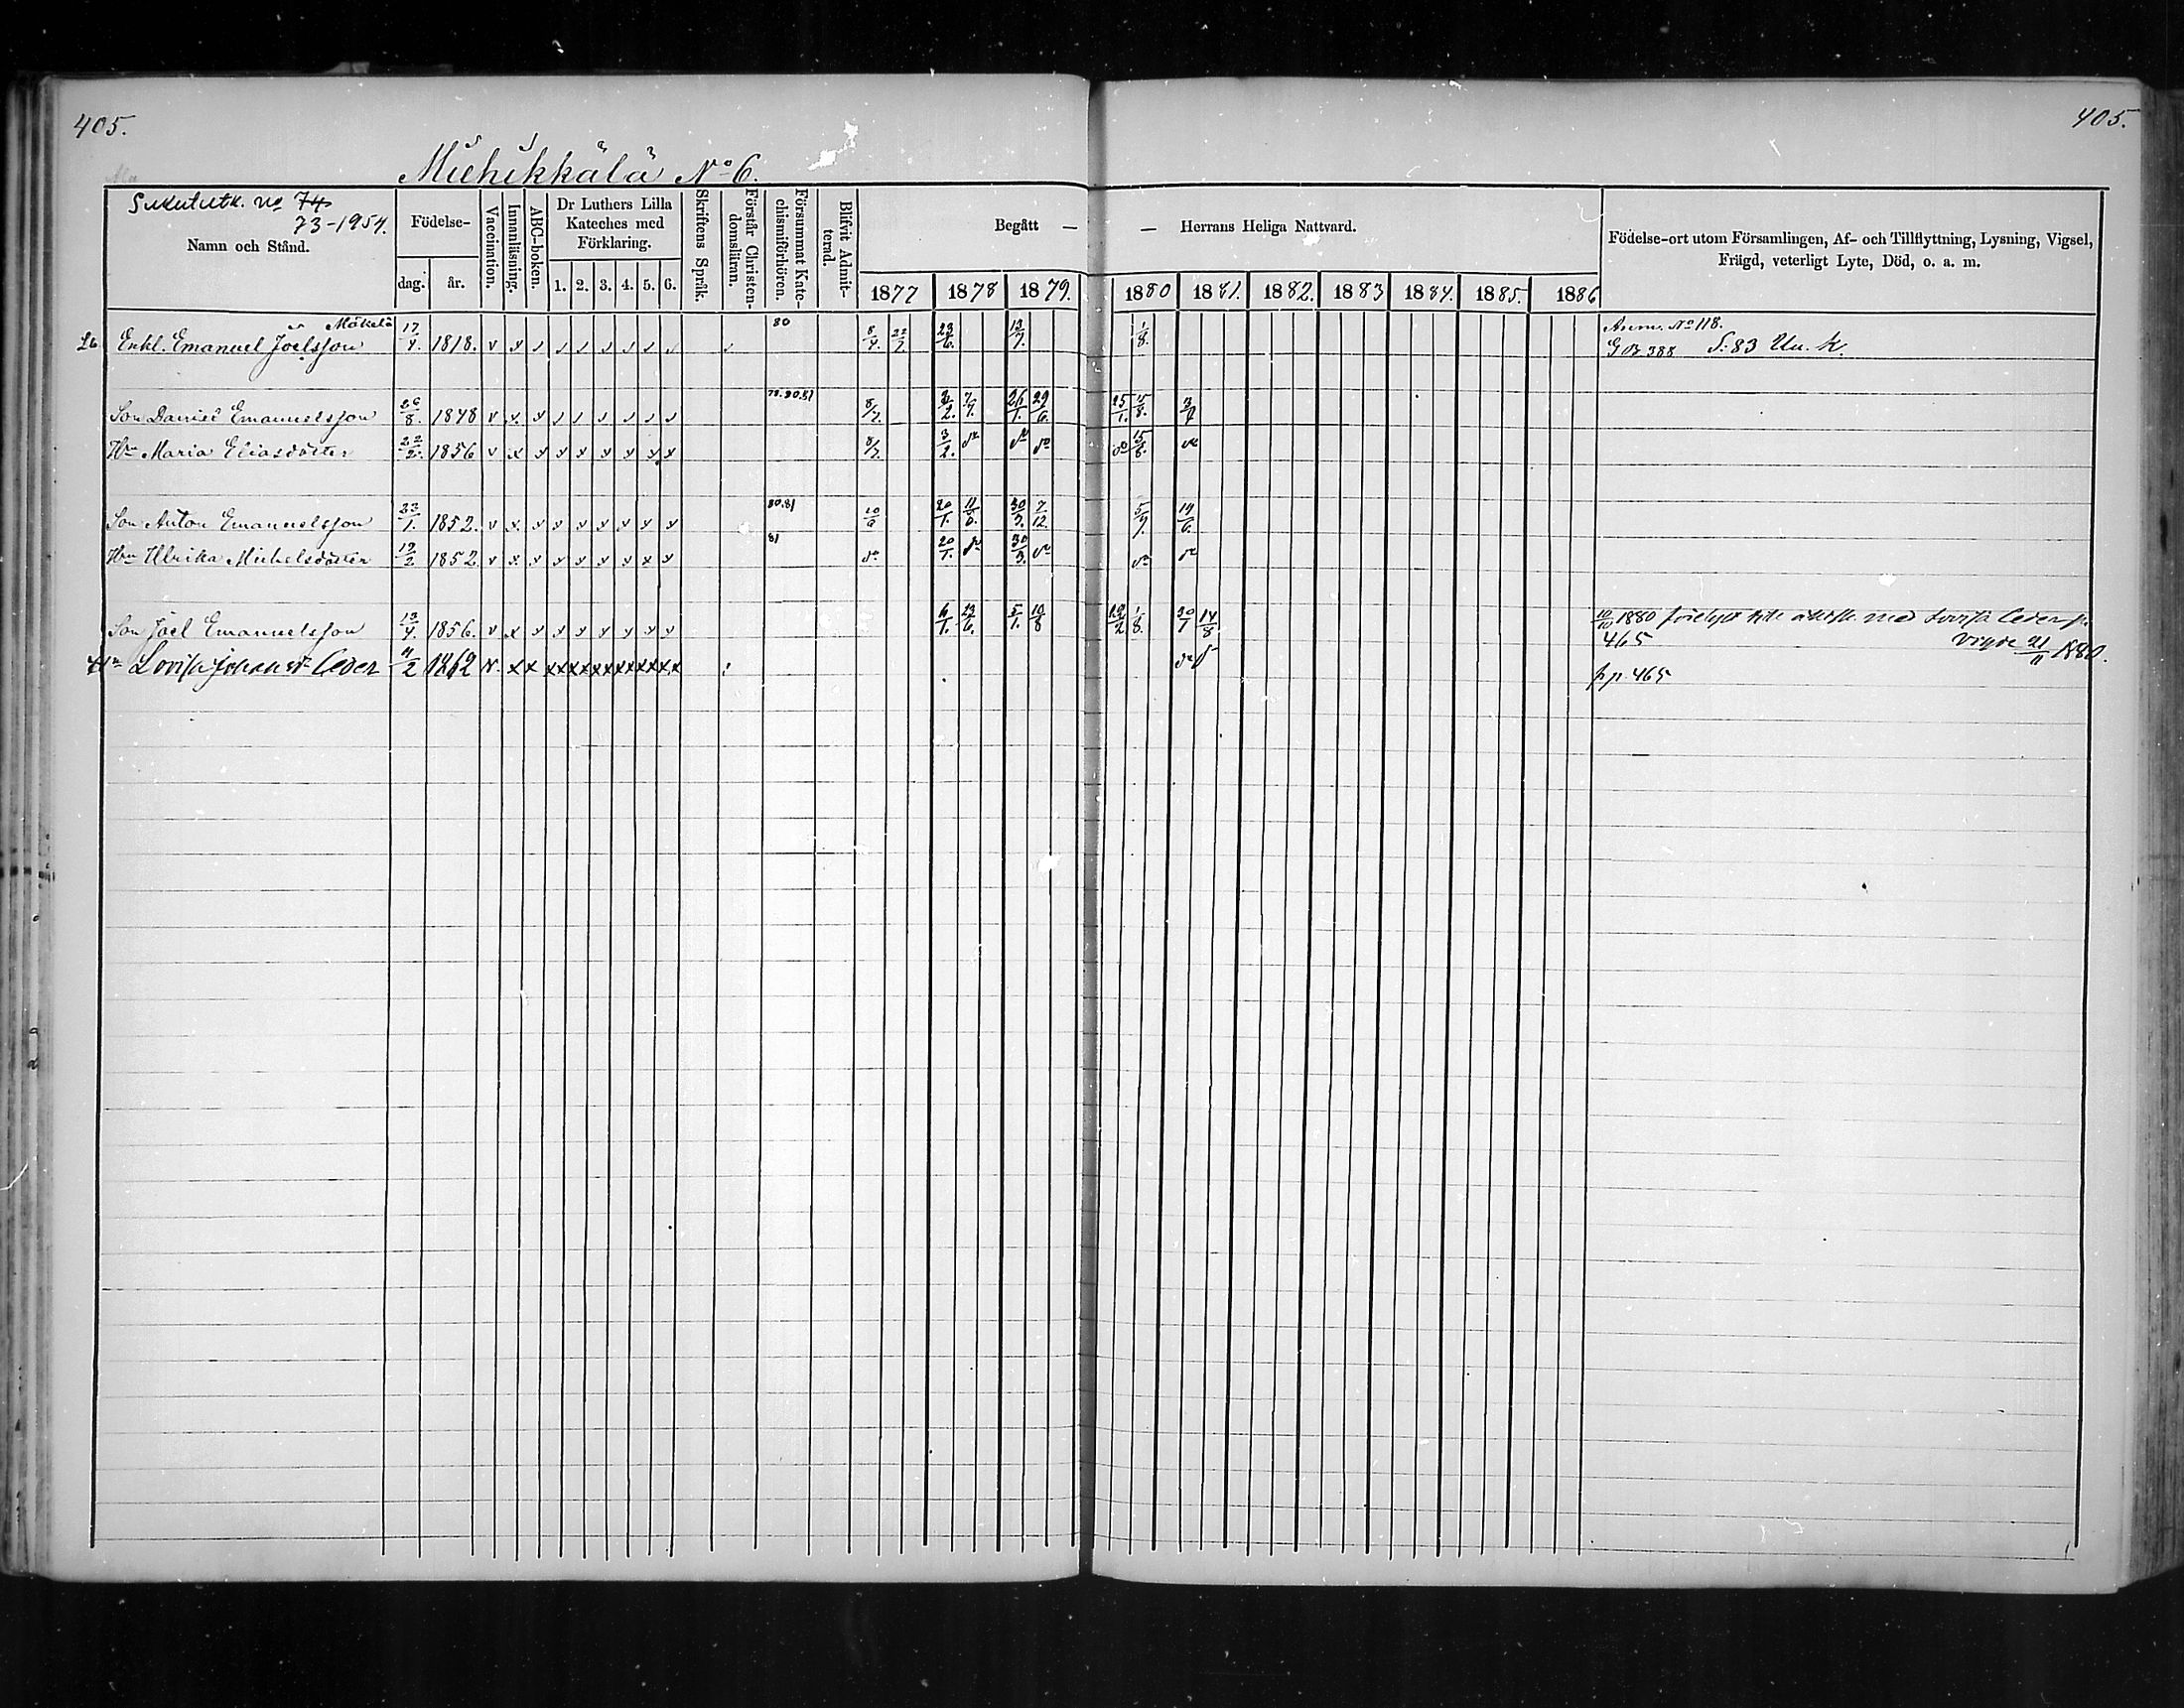 405.
405.
Miehikkälä No 6.
Sukututk. no 74
73-1954.
Namn och Stånd.
Födelse-
dag. år.
Vaccination.
Innanläsning.
ABC-boken.
Dr Luthers Lilla Kateches med Förklaring.
1. 2. 3. 4. 5. 6.
Skriftens Språk.
Förstår Christendomsläran.
Försummat Katechismiförhören.
Blifvit Admitterad.
Begått — — Herrans Heliga Nattvard.
1877 1878 1879. 1880 1881. 1882. 1883 1884. 1885. 1886
Födelse-ort utom Församlingen, Af- och Tillflyttning, Lysning, Vigsel,
Frägd, veterligt Lyte, Död, o. a. m.
Mäkelä
Enkl. Emanuel Joelsson 17/4. 1818. 80 8/4. 22/7. 23/6. 13/7. 1/8. Anm. No 118.
G B 388 S: 83 Un. K.
Son Daniel Emanuelsson 26/8 1848 8/7. 7/7. 26/1. 29/6. 25/1.
Hu Maria Eliasdotter 22/2. 1856 8/7. 3/2. do do do do 15/8. do
Son Anton Emanuelsson 23/1. 1852. 80.81 10/6 20/1. 11/8. 30/3. 7/12. 5/9. 19/6.
Hu Ulrika Michelsdotter 19/2 1852. 81 do 20/1. do 30/3. do do do
Son Joel Emanuelsson 13/4. 1856. 6/1. 23/6. 5/1. 10/8 19/2 1/8. 30/7 14/8. 10/10 1880 Lovisa Ceder p.
465 Vigde 21/11 1880.
Hu Lovisa Johansdr Ceder 4/2 1862 do do
pp. 465